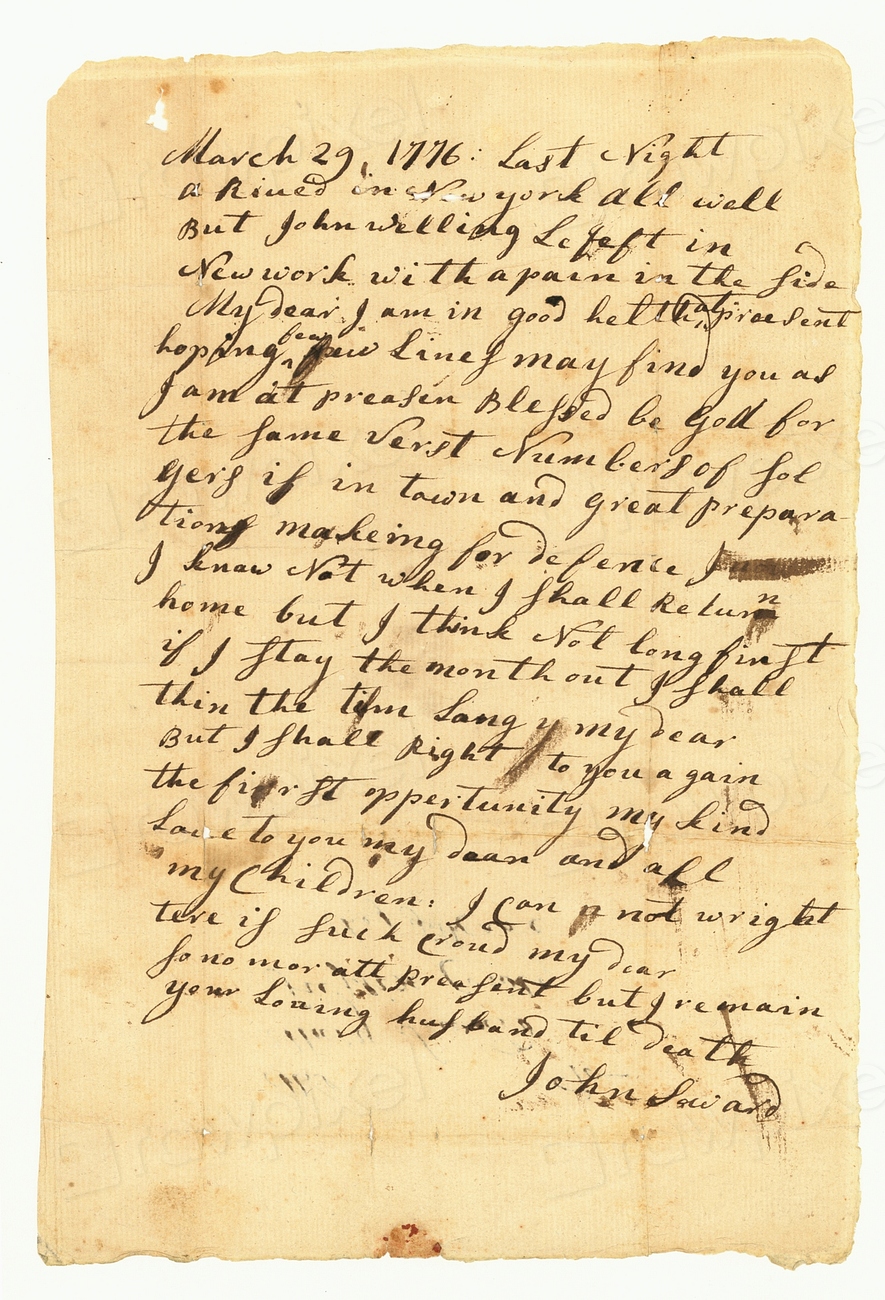 March 29, 1776: Last Night
a Rived in New york all well
But John welling Lefeft in
New work with a pain in the side
My dear I am in good helth at praesent
hoping few few Lines may find you as
I am at preasen Blessed be God for
the same Verst Numbers of sol
gers is in town and great prepara-
tions makeing for defence I
I knaw Not when I shall Return
home but I think Not long finst
if I stay the month out I shall
thin the tim Lang my dear
But I shall Right to you again
the first oppertunity my kind
Love to you my dear and all
my Children: I can not wright
tere is such croud my dear
so no mor att preasent but I remain
your Loving husband til death
John Seward